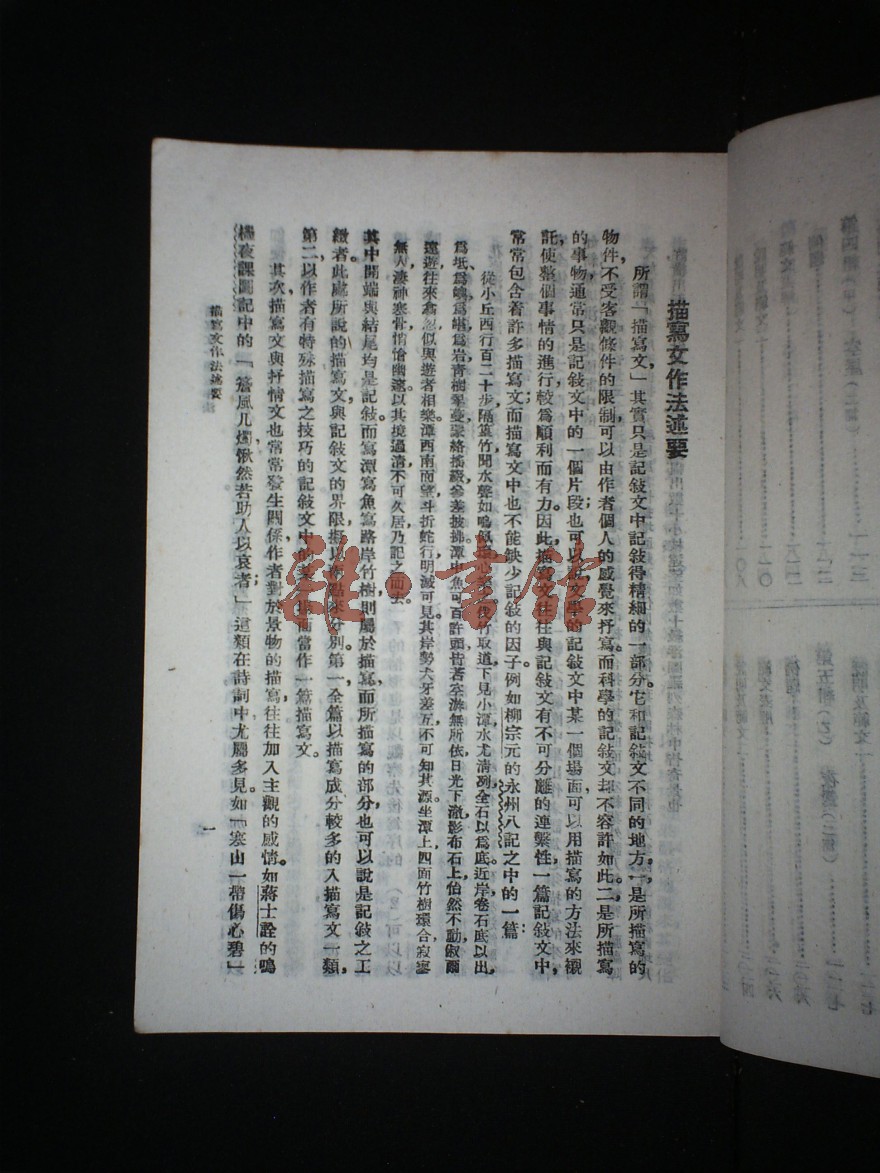 描寫文作法述要
所謂「描寫文」其實只是記敍文中記敍得精細的一部分。它和記敍文不同的地方,一是所描寫的
物件,不受客觀條件的限制,可以由作者個人的感覺來抒寫,而科學的記敍文却不容許如此;二是所描寫
的事物,通常只是記敍文中的一個片段;也可以說文學的記敍文中某一個場面,可以用描寫的方法來襯
託,使整個事情的進行較爲順利而有力。因此描寫文往往與記敍文有不可分離的連繫性,一篇記敍文中,
常常包含着許多描寫文;而描寫文中也不能缺少記敍的因子。例如柳宗元的永州八記之中的一篇:
從小丘西行百二十步,隔篁竹,聞水聲,如鳴佩環,心樂之。伐竹取道,下見小潭,水尤清冽。全石以爲底,近岸卷石底以出,
爲坻、爲嶼、爲嵁、爲岩。青樹翠蔓,蒙絡搖綴,參差披拂。潭中魚可百許頭,皆若空游無所依。日光下澈,影布石上,怡然不動,俶爾
遠遊,往來翕忽,似與遊者相樂。潭西南而望,斗折蛇行,明滅可見。其岸勢犬牙差互,不可知其源。坐潭上,四面竹樹環合,寂寥
無人,凄神寒骨,悄愴幽邃。以其境過淸,不可久居,乃記之而去。
其中開端與結尾均是記敍。而寫潭寫魚寫路岸竹樹,則屬於描寫,而所描寫的部分,也可以說是記敍之工
緻者。此處所說的描寫文與記敍文的界限,擬以兩點來分別。第一,全篇以描寫成分較多的入描寫文一類,
第二,以作者有特殊描寫之技巧的記敍文中的某一場面當作一篇描寫文。
其次描寫文與抒情文也常常發生關係,作者對於景物的描寫,往往加入主觀的感情。如蔣士詮的鳴
機夜課圖記中的「簷風几燭,愀然若助人以哀者;」這類在詩詞中尤屬多見。如「寒山一帶傷心碧」
描寫文作法述要
一
雜·書館